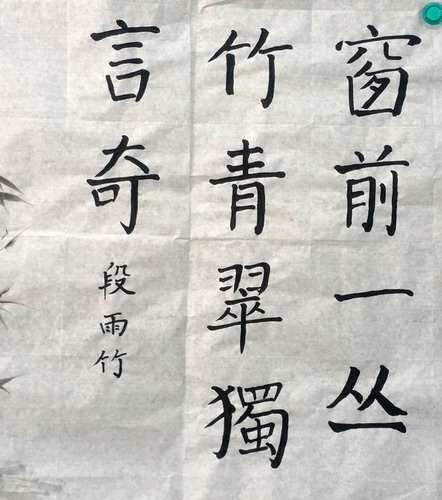 窗前一丛
竹青翠獨
言奇
段雨竹